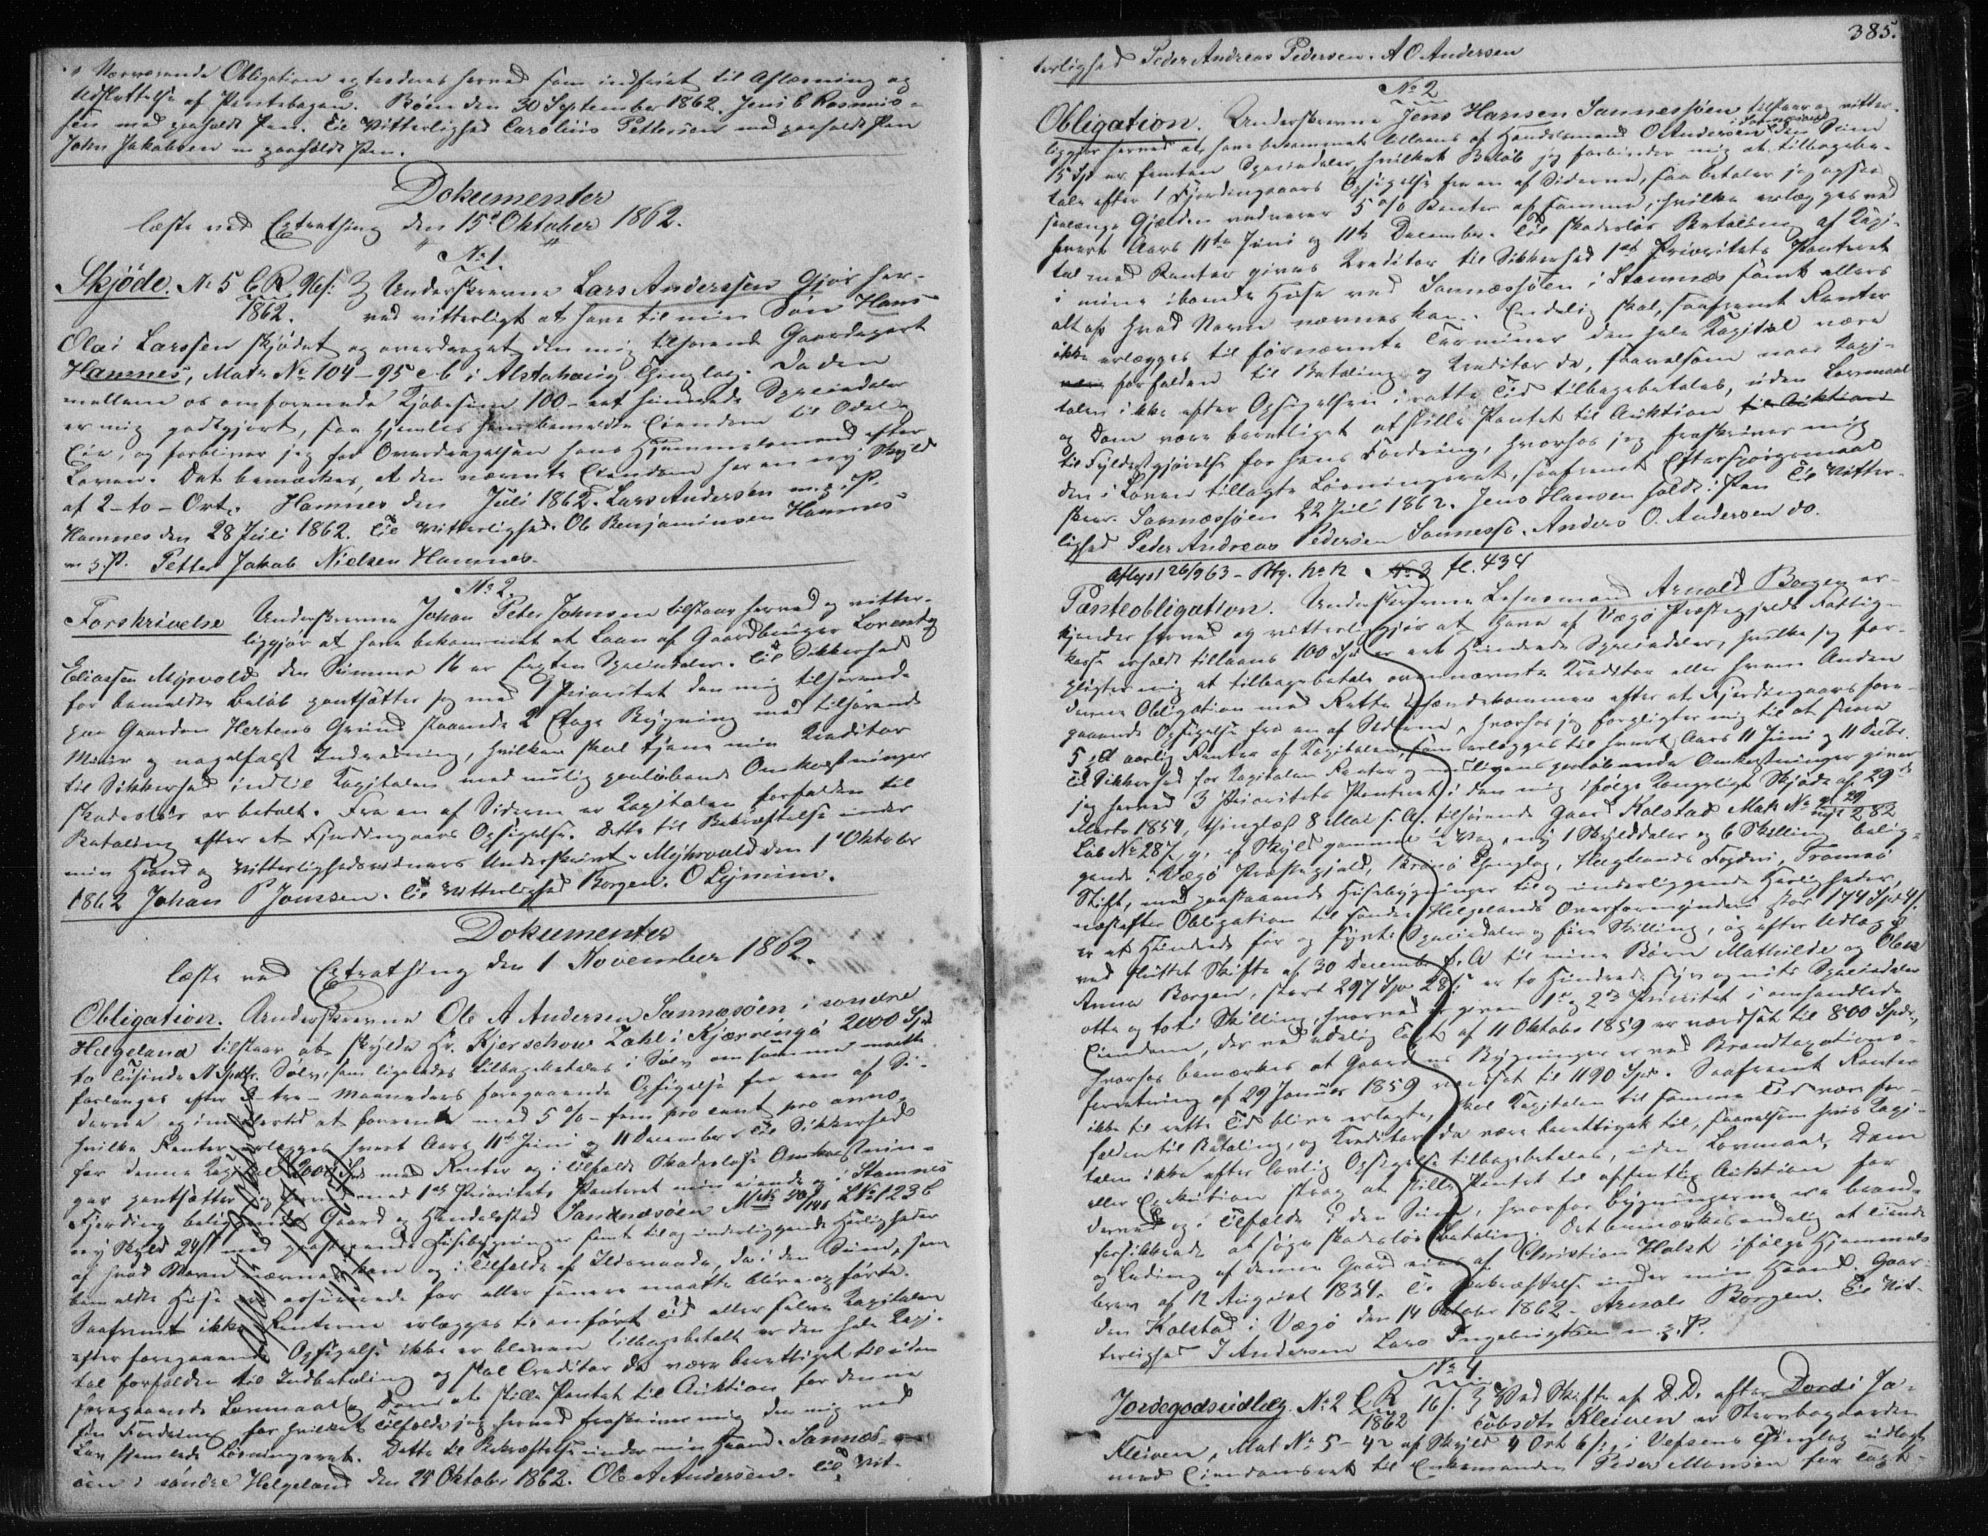 Nærværende Obligation extraderes herved som indfriet til Aflæsning og
Udslettelse af Pantebogen. Böen den 30 September 1862. Jens E Rasmus-
sen med paaholdt Pen. Til Vitterlighed Carolius Pettersen med paaholdt Pen
John Jakobsen m paaholdt Pen.
Dokumenter
læste ved Extrathing den 15de Oktober 1862.
No 1
Skjöde. No 5 C. R. 1862. Underskrevne Lars Anderssen Gjör her-
ved vitterligt at have til min Sön Hans
Olai Larssen skjödet og overdraget den mig tilhörende Gaardspart
Hamnes, Matr No 104 – 95 c b i Alstahoug Thinglag. Da den
mellem os omforenede Kjöbesum 100 – eet hundrede Speciedaler
er mig godtgjort, saa hjemles ham bemeldte Eiendom til Odel &
Eie, og forbliver jeg for Overdragelsen hans Hjemmelsmand efter
Loven. Det bemærkes, at den nævnte Eiendom har en ny Skyld
af 2 – to – Ort. Hamnes den Juli 1862. Lars Andersen m. p. P.
Hamnes den 28 Juli 1862. Til Vitterlighed. Ole Benjaminsen Hamnes
m. p. P. Petter Jakob Nielsen Hamnes.
No 2.
Forskrivelse Underskrevne Johan Peter Johnsen tilstaar herved og vitter-
liggjör at have bekommet et Laan af Gaardbruger Lorents
Eliassen Mejsvold den Summa 16 er Sexten Speciedaler. Til Sikkerhed
for bemeldte Belöb pantsætter jeg med 1 Prioritet den mig tilhörende
paa Gaarden Hertens Grund staaende 2 Etage Bygning med tilhörende
Muur og nagelfast Indredning, hvilken skal tjene min Kreditor
til Sikkerhed indtil Kapitalen med mulig paalöbende Omkostninger
skadeslös er betalt. Fra en af Siderne er Kapitalen forfalden til
Betaling efter et Fjerdingaars Opsigelse. Dette til Bekræftelse under
min Haand og Vitterlighedsvidners Underskrivt. Mejhsvold den 1 Oktober
1862 Johan P Jonssen. Til Vitterlighed Borgen. O Lejmim.
Dokumenter
læste ved Extrathing den 1 November 1862.
Obligation. Underskrevne Ole A Andersen Sannæsöen i söndre
Helgeland tilstaar at skylde Hr. Kjerschow Zahl i Kjærringö 2000 Spd
to Tusinde N Spdlr. Sölv, som ligeledes tilbagebetales i Sölv om saameget maatte
forlanges efter 3 tre – Maaneders foregaaende Opsigelse fra een af Si-
derne og imidlertid at forrente med 5 % – fem pro cent pro anno,
hvilke Renter erlægges hvert Aars 11te Juni og 11 December. Til Sikkerhed
for denne Kapital 2000 Spd med Renter og i Tilfælde Skadeslöse Omkostnin-
ger pantsætter jeg herved med 1ste Prioritets Panteret min eiende og i Stamnes
Fjerding beliggende Gaard og Handelssted Sandnæsöen M No 40/141 L No 123 b
ny Skyld 24 ß med paastaaende Huusebygninger samt til og underliggende Herligheder
af hvad Navn nævnes kan og i Tilfælde af Ildsvaade, da i den Summa, som
bemeldte Huse er assurerede for eller senere maatte blive opförte.
Saafremt ikke Renterne erlægges til anfört Tid eller selve Kapitalen
efter foregaaende Opsigelse ikke er bleven tilbagebetalt er den hele Kapi-
tal forfalden til Indbetaling og skal Creditor da være berettiget til uden
foregaaende Lovmaal og Dom at stille Pantet til Auktion for denne
sin Fordring for hvilket Tilfælde jeg herved fraskriver mig den mig ved
Lov hjemlede Lösningsret. Dette til Bekræftelse under min Haand. Sannæs-
öen i söndre Helgeland den 24 Oktober 1862. Ole A Andersen. Til Vit-
385.
terlighed Peder Andreas Pedersen. A O. Andersen
No 2
Obligation. Underskrevne Jens Hansen Sannessöen tilstaar og vitter-
liggjör herved at have bekommet tillaans af Handelsmand O. Andersen Sannæsöen den Sum
15 Spd er femten Speciedaler, hvilket Belöb jeg forbinder mig at tilbagebe-
tale efter 1 Fjerdingaars Opsigelse fra en af Siderne, saa betaler jeg ogsaa
saalænge Gjælden vedvarer 5 % Renter af samme, hvilke erlægges ved
hvert Aars 11te Juni og 11te December. Til skadeslös Betaling af Kapi-
tal med Renter gives Kreditor til Sikkerhed 1ste Prioritets Panteret
i mine iboende Huse ved Sannæssöen i Stamnes samt ellers
alt af hvad Navn nævnes kan. Endelig skal, saafremt Renter
ikke erlægges til fornævnte Terminer den hele Kapital være
forfalden til Betaling og Kreditor da, saavelsom naar Kapi-
talen ikke efter Opsigelsen i rette Tid tilbagebetales, uden Lovmaal
og Dom være berettiget at stille Pantet til Auktion til Auktion
til Fyldestgjörelse for hans Fordring, hvorhos jeg fraskriver mig
den i Loven tillagte Lösningsret, saafremt Eftersporgsmaal
skeer. Sannæssöen 22 Juli 1862. Jens Hansen holdt i Pen Til Vitter-
lighed Peder Andreas Pedersen Sannessö. Anders O. Andersen do.
Aflyst 26/9 63 – Ptg. No 12 No 3 fl. 434
Panteobligation. Underskrevne Lehnsmand Arnold Borgen er-
kjender herved og vitterliggjör at have af Vægö Præstegjelds Fattig-
kasse erholdt tillaans 100 Spd er eet Hundrede Speciedaler, hvilke jeg for-
pligter mig at tilbagebetale ovennævnte Kreditor eller hvem Anden
denne Obligation med Rette ihændekommer efter et Fjerdingaars fore-
gaaende Opsigelse fra en af Siderne, hvorhos jeg forpligter mig til at svare
5 pCt aarlig Renter af Kapitalen, som erlægges til hvert Aars 11 Juni og 11 Decbr.
Til Sikkerhed for Kapitalen Renter og muligens paalöbende Omkostninger giver
jeg herved 3 Prioritets Panteret i den mig ifölge Kongeligt Skjöde af 29de
Marts 1854, thinglæst 8 Mai s. A. tilhörende Gaard Kolstad Matr No gl 29 nyt 282
Löb No 287 a, af Skyld gammel 1/2 Vog, ny 1 Skylddaler og 6 Skilling belig-
gende i Vægö Præstegjeld, Brönö Thinglag, Helgelands Fogderi, Tromsö
Stift, med paastaaende Huusebygninger til og underliggende Herligheder,
næstefter Obligation til söndre Helgelands Overformynderi stor 174 Spd 4 ß
er et Hundrede fir og syvti Speciedaler og fire Skilling, og efter Udlæg
ved sluttet Skifte af 30 December f. A til mine Börn Mathilde og Oline
Anna Borgen, stort 297 Spd 28 ß er to Hundrede syv og niti Speciedaler
otte og toti Skilling, hvorved er given 1ste & 2den Prioritet i omhandlede
Eiendom, der ved edelig Taxt af 11 Oktober 1859 er værdsat til 800 Spdr,
hvorhos bemærkes at Gaardens Bygninger er ved Brandtaxations-
forretning af 29 Januar 1859 værdsat til 1190 Spd. Saafremt Renter
ikke til rette Tid blive erlagte, skal Kapitalen til samme Tid være for-
falden til Betaling, og Kreditor da være berettiget til, saavelsom hvis Kapi-
talen ikke efter lovlig Opsigelse tilbagebetales, uden Lovmaal, Dom
eller Exekution strax at stille Pantet til offentlig Auktion for
derved og i Tilfælde i den Summa, hvorfor Bygningerne ere brand-
forsikkrede at söge skadeslös Betaling. Det bemærkes endelig at Eiende
og Luding af denne Gaard eies af Christian Holst ifölge Hjemmels
brev af 12 August 1834. Til Bekræftelse under min Haand. Gaar-
den Kolstad i Vægö den 14 Oktober 1862. Arnold Borgen. Til Vit-
terlighed J Andersen Lars Ingebrigtsen m. p. P.
No 4.
Jordegodsudlæg. No 2 C. R. 1862 16 ß. Ved Skifte af D. D. efter Dordi Ja-
cobsdt Kleiven er Stervbogaarden
Kleiven, Mat No 5 – 42 af Skyld 4 Ort 6 ß, i Vefsens Thinglag udlagt
med Eiendomsret til Enkemanden Peder Monsen for Taxt-